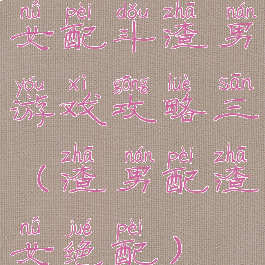 nǚ pèi dǒu zhā nán
女配斗渣男
yóu xì gōng lüè sān
游戏攻略三
zhā nán pèi zhā
(渣男配渣
nǚ jué pèi
女绝配)